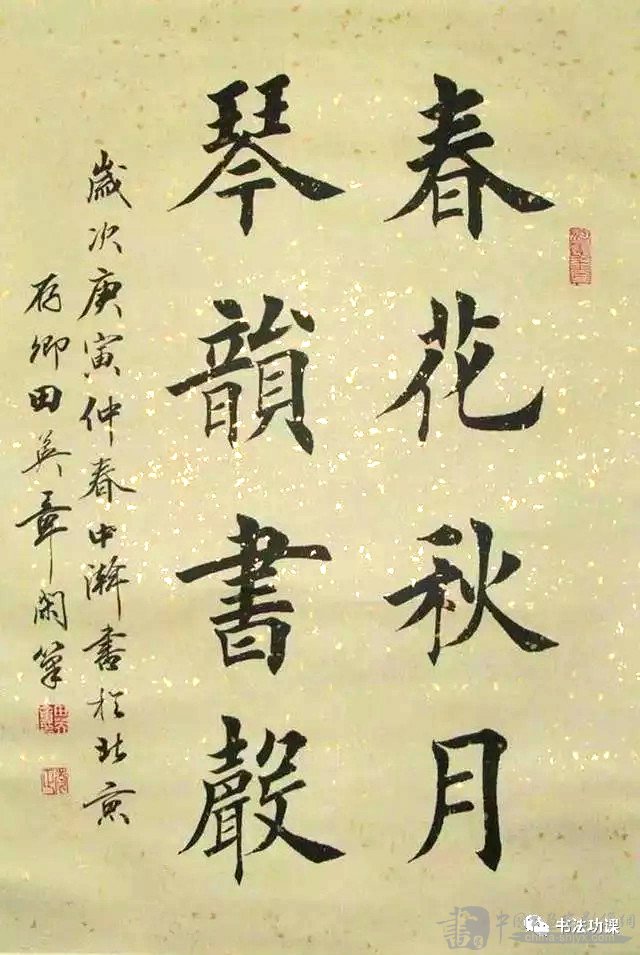 春花秋月
琴韻書聲
歲次庚寅仲春中澣書於北京
存卿田英章閑筆
书法功课
china-shfyx.com